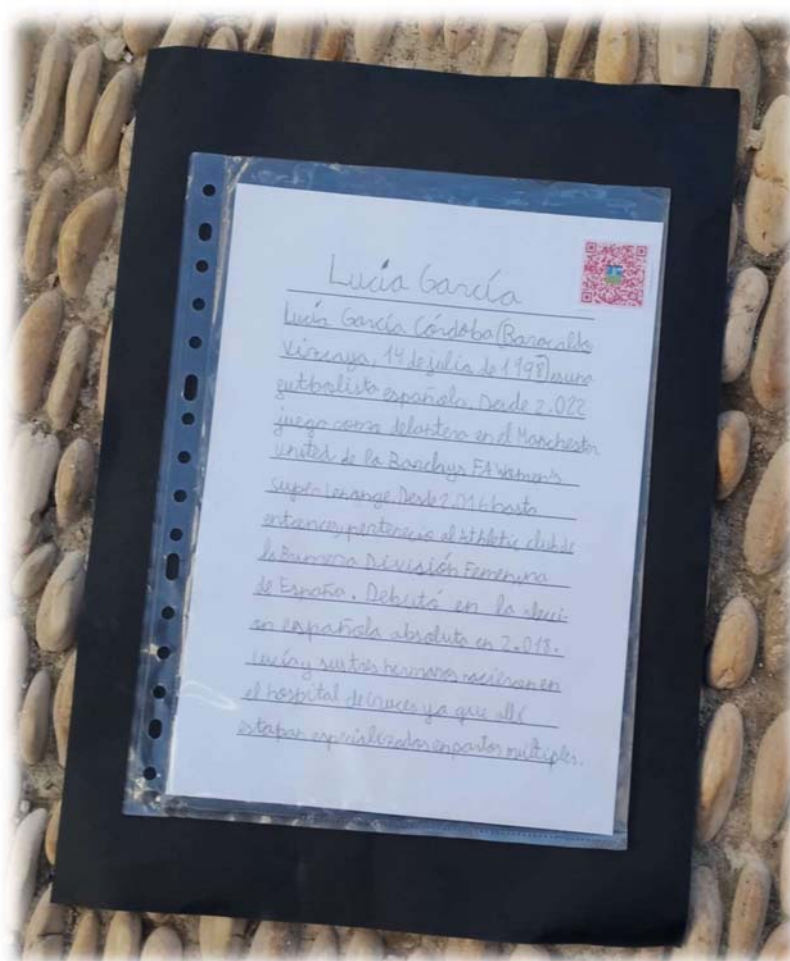 Lucía García
Lucía García Córdoba (Baracaldo
Vizcaya, 14 de julio de 1998) es una
futbolista española. Desde 2.022
juega como delantera en el Manchester
United de la Barclays FA Women's
super
Desde 2.016 hasta
entonces pertenecía al Athletic club de
la Primera División Femenina
de España. Debutó en la selecci-
on española absoluta en 2.018.
Lucía y sus tres hermanos nacieron en
el hospital de cruces ya que allí
estaban especializados en partos múltiples.